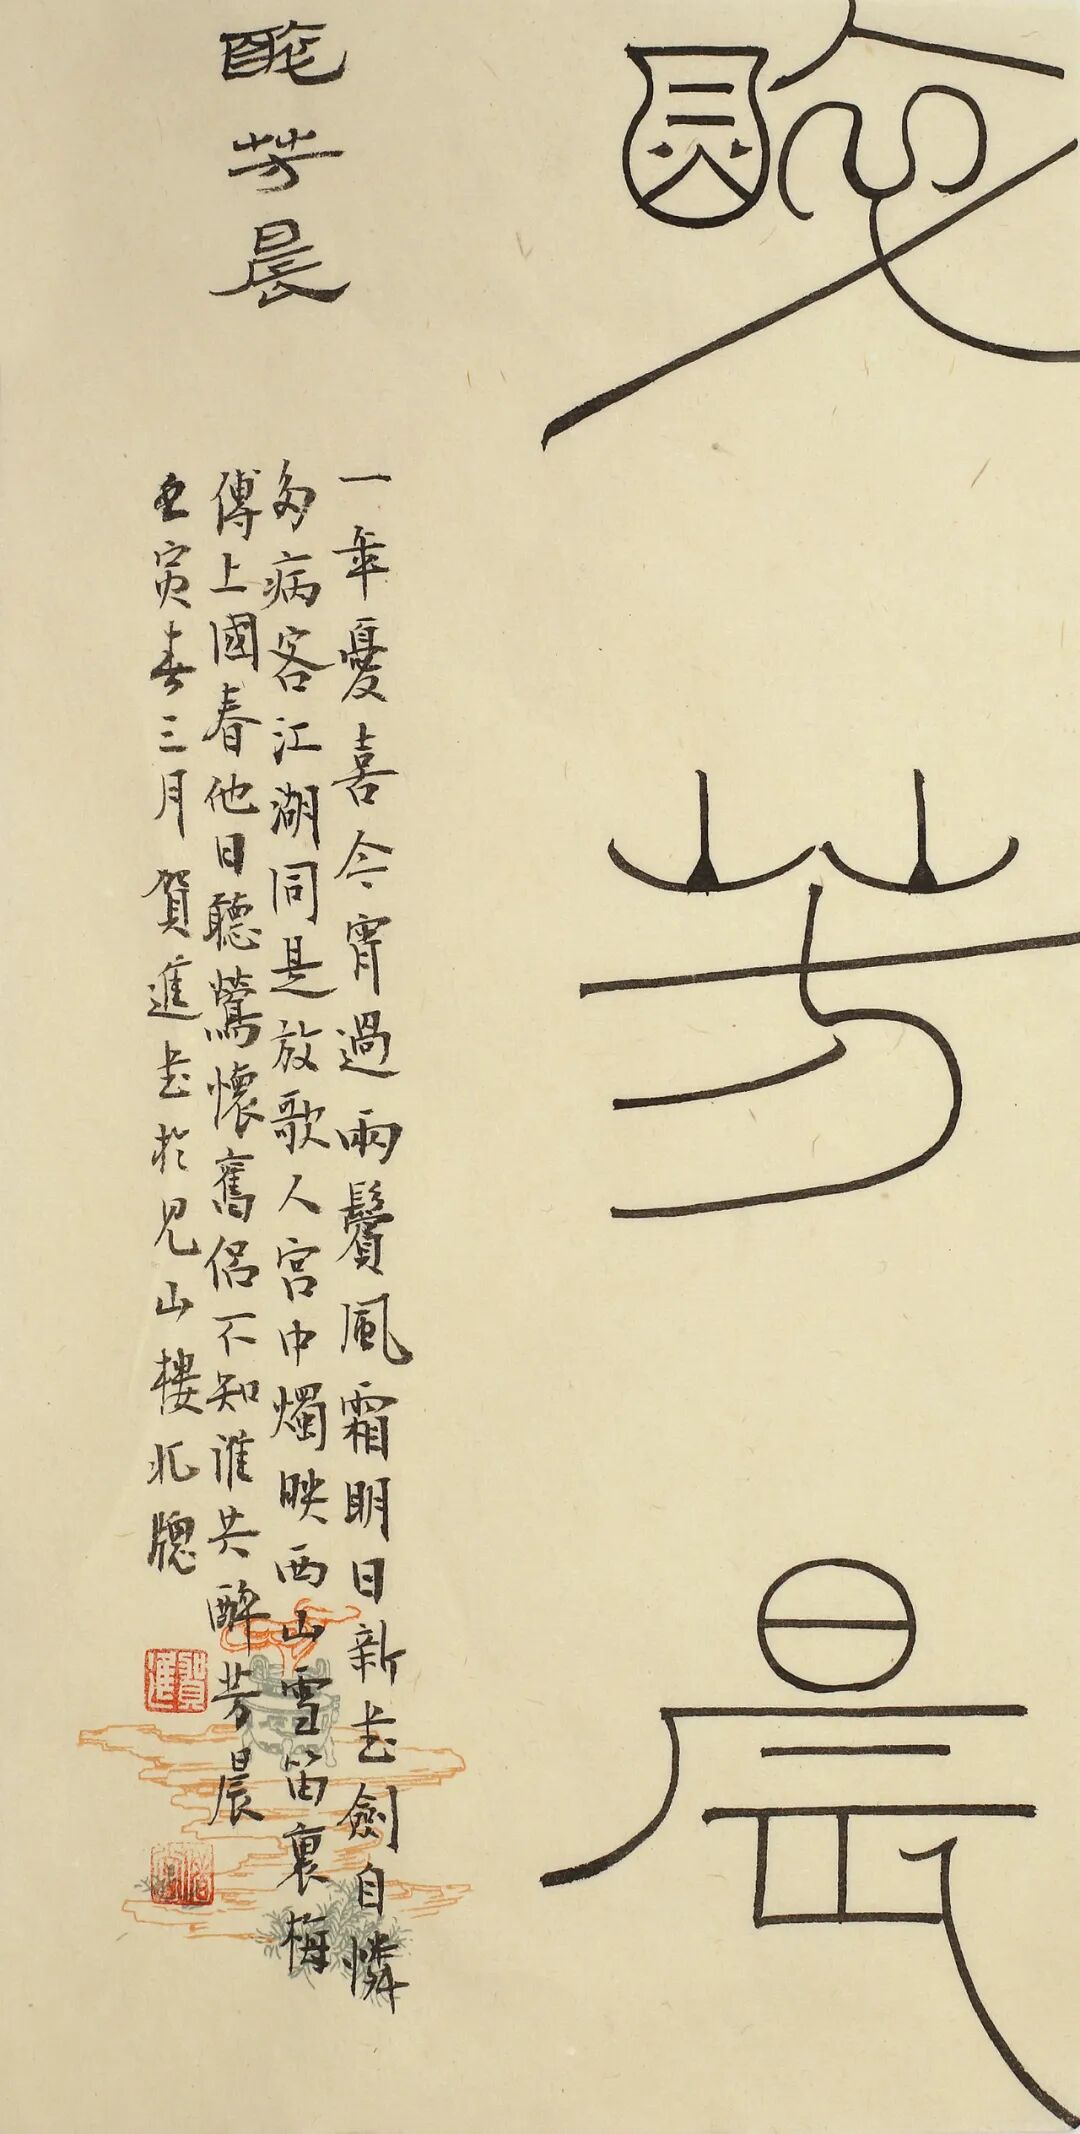 醉芳晨
醉芳晨
一年憂喜今宵過兩鬢風霜明日新書劍自憐
多病客江湖同是放歌人宮中燭映西山雪笛裏梅
傳上國春他日聽鶯懷舊侶不知誰共醉芳晨
壬寅春三月賀進書於見山樓北牕
賀進